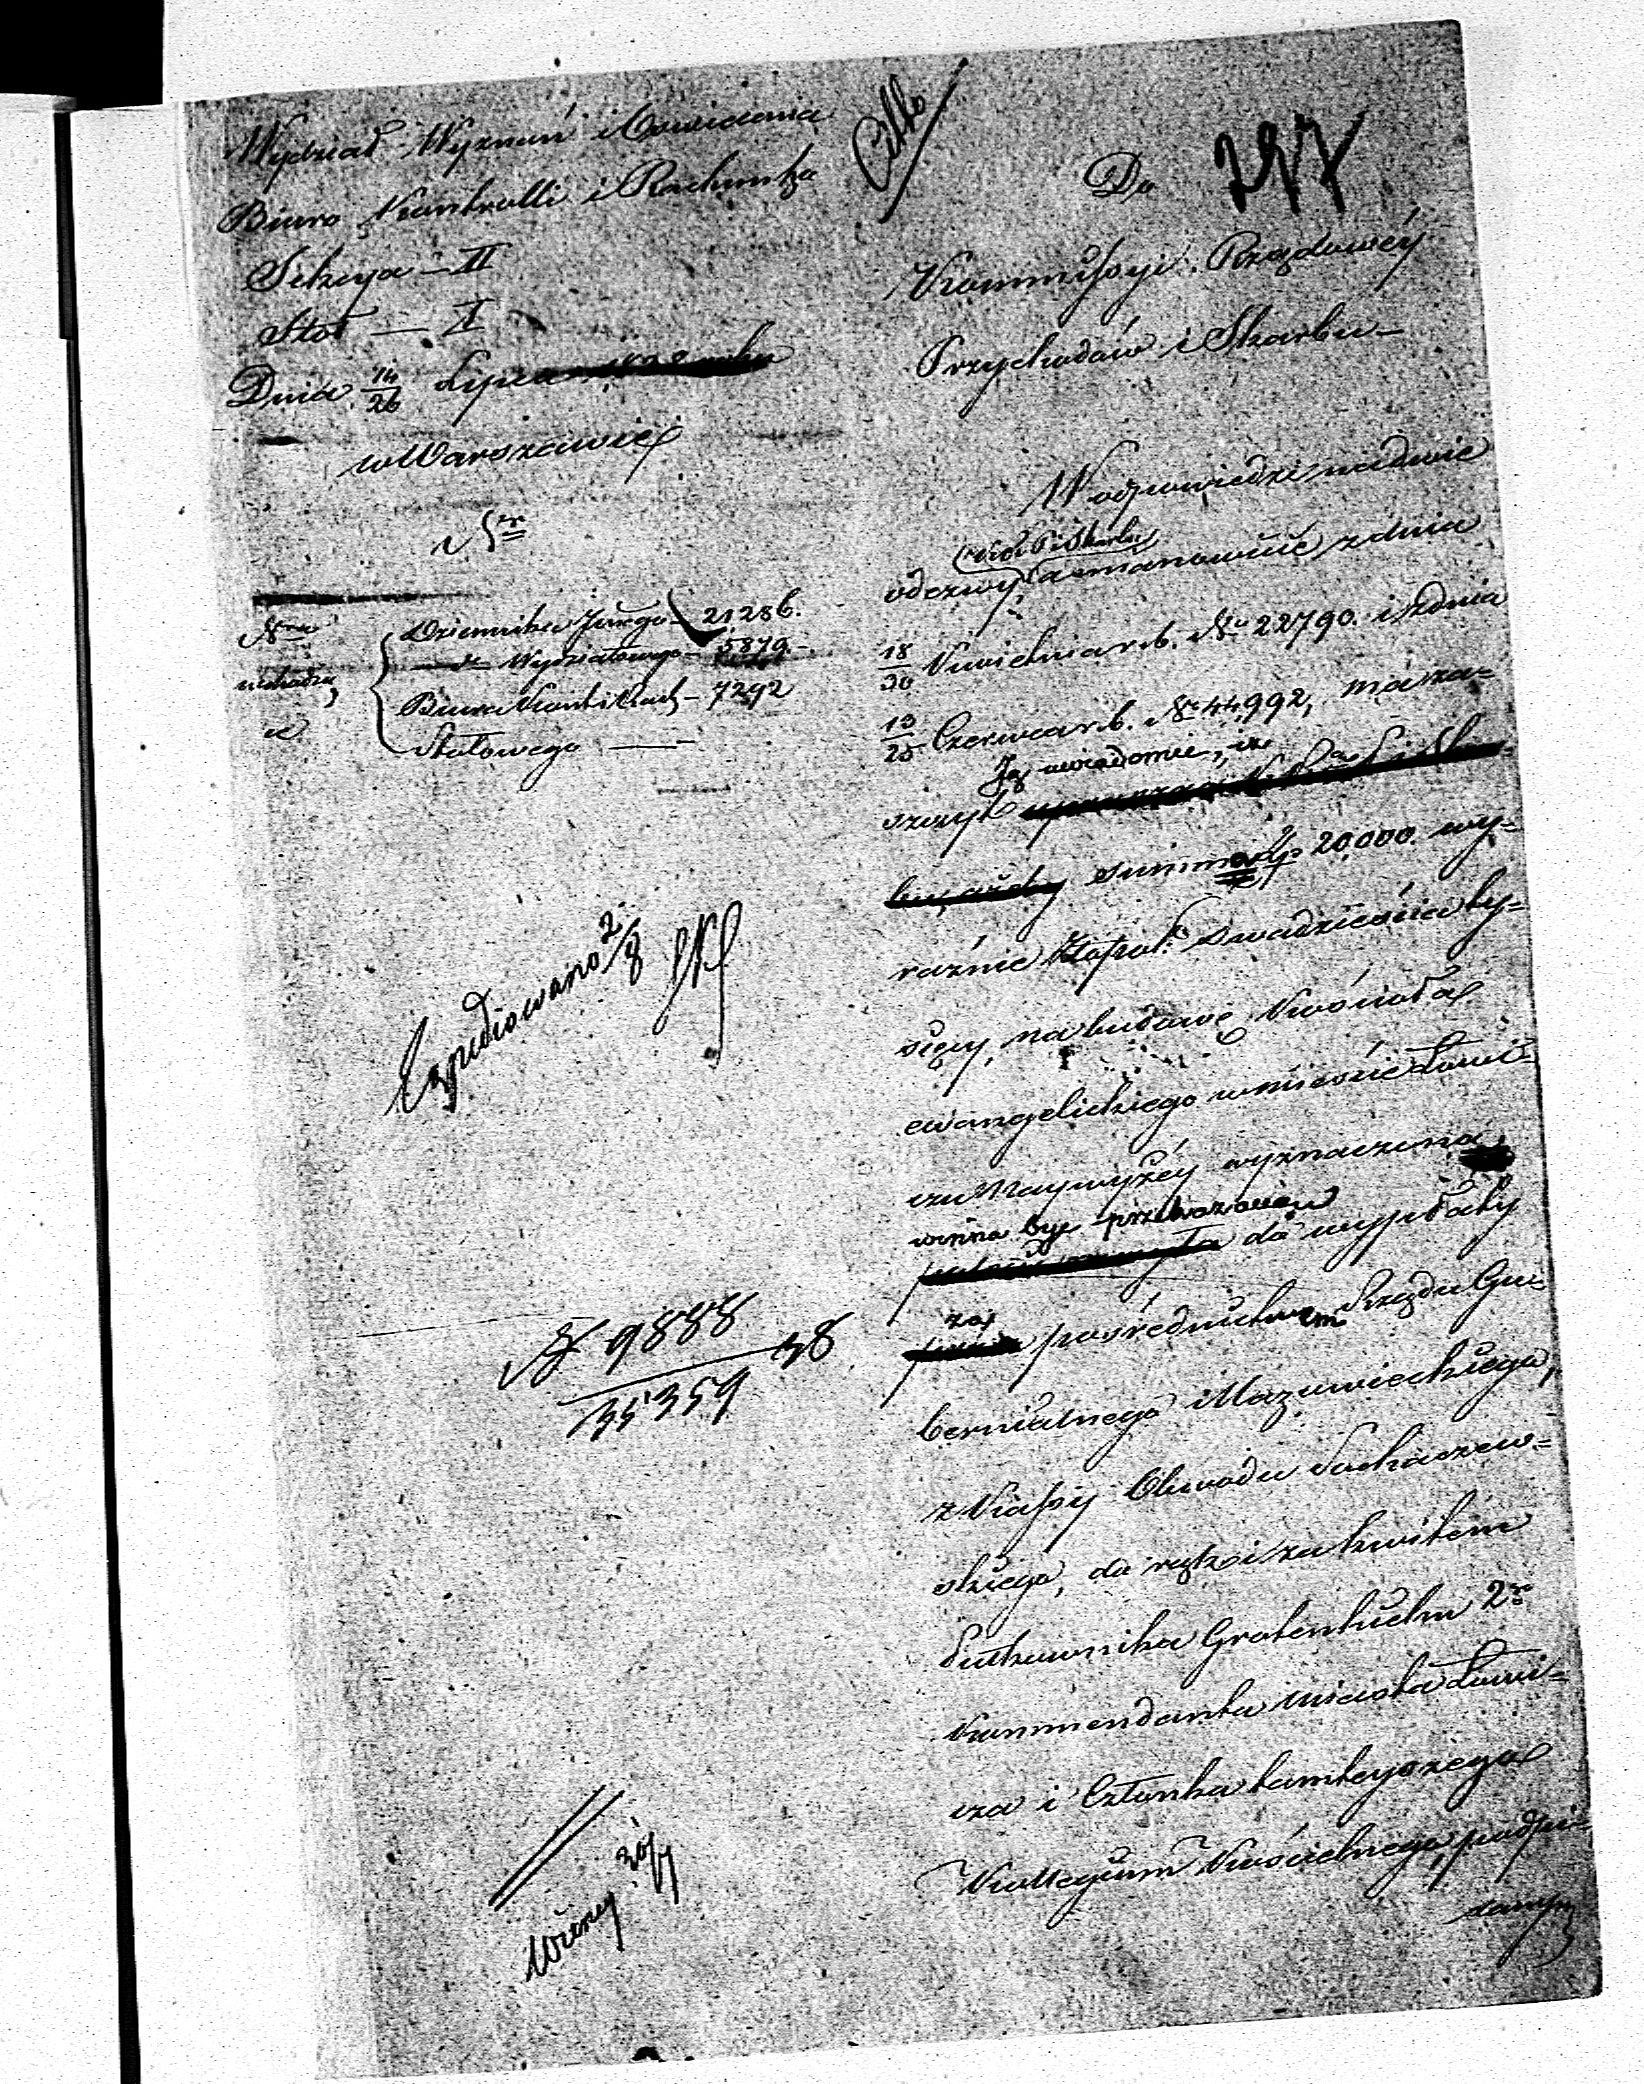 Wydział Wyznań i Oświecenia
Biuro Kontrolli i Rachunko
Sekcya – II
Stół — I
Dnia 14/26 Lipca
w Warszawie
Nr
Cito
297
Do
Kommissyi Rządowéy
Przychodów i Skarbu –
Dziennika Jłnego – 21286.
Wydziałowego – 5879. –
Biura Kontr i Rach – 7292
Stołowego —
W odpowiedzi na dwie
odezwy a mianowicie z dnia
18/30 Kwietnia r. b. No 22790. i z dnia
13/25 Czerwca r. b. No 44992, ma za=
Ją uwiadomić, iż
szczyt
summa Złp 20,000. wy=
raźnie Złotpol. Dwadzieścia ty=
sięcy, na budowę Kościoła
ewangelickiego w mieście Łowi=
czu Naywyżéy wyznaczona
winna być przekazaną
do wypłaty
za
pośrednictwem Rządu Gu=
bernialnego Mazowieckiego,
z Kassy Obwodu Sochaczew=
skiego, do rąk i za kwitem
Pułkownika Grotenhielm 2go
Kommendanta Miasta Łowi=
cza i Członka tamteyszego
Kollegium Kościelnego, podpi=
sanym
Expediowano 2/8
N 9888
35359 38
30/7